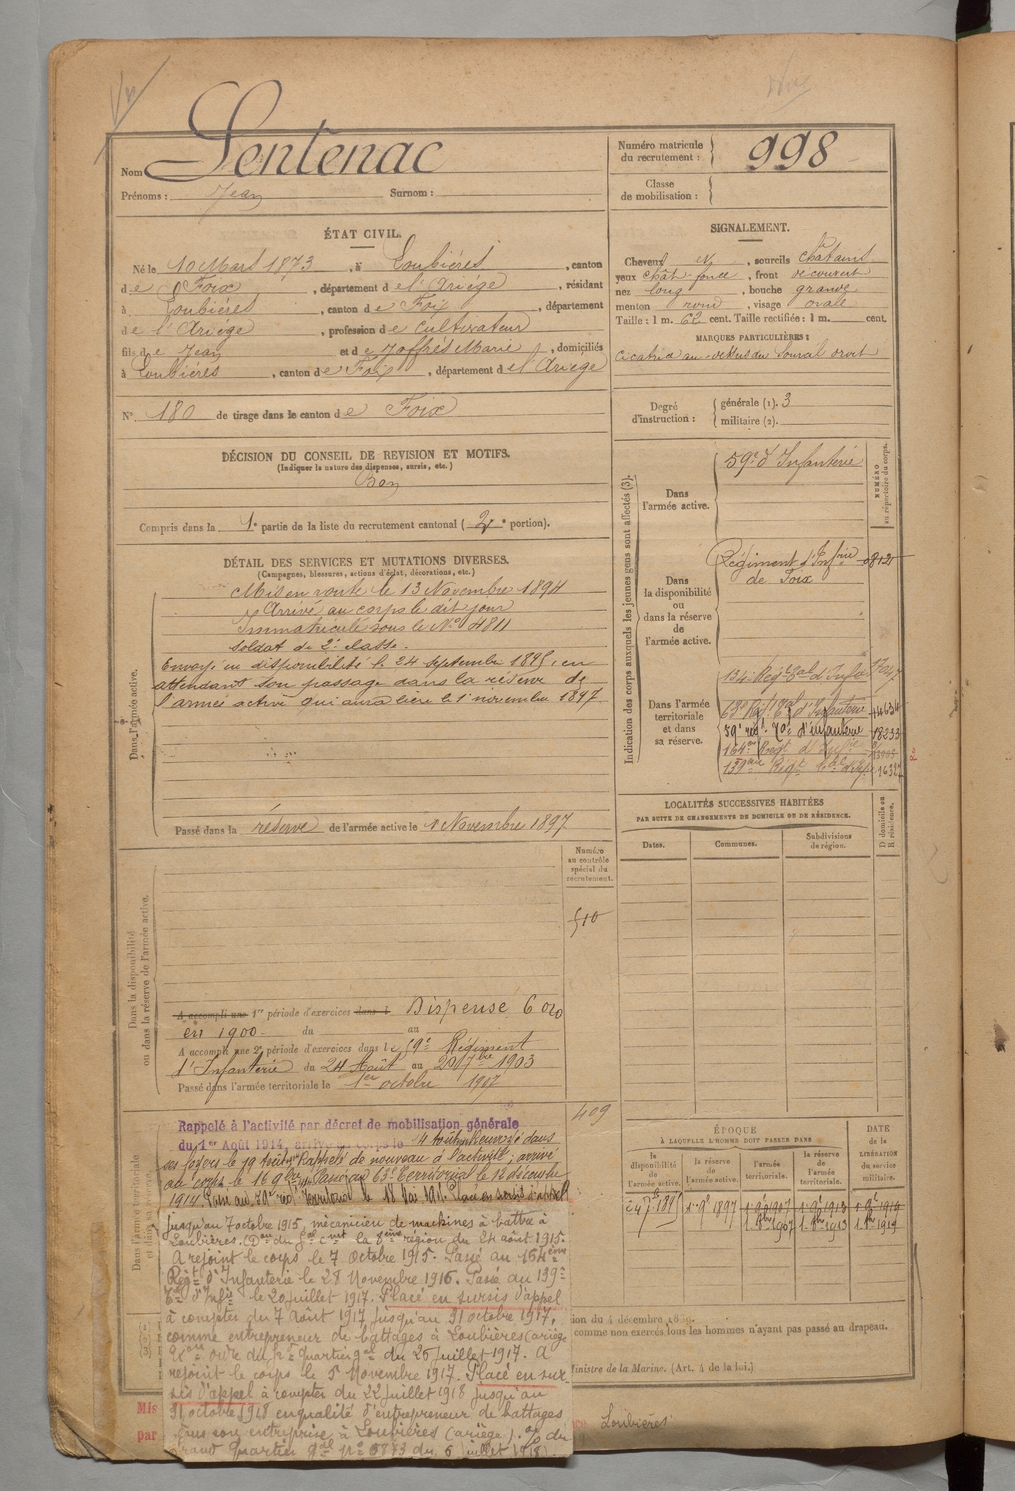 Nom Sentenac
Prénoms : Jean Surnom :
Numéro matricule du recrutement : 998
Classe de mobilisation :
ÉTAT CIVIL.
Né le 10 Mars 1873, à Loubières, canton
de Foix, département de l'Ariège, résidant
à Loubières, canton de Foix, département
de l'Ariège, profession de Cultivateur
fils de Jean et de Joffrès Marie, domiciliés
à Loubières, canton de Foix, département de l'Ariège
N° 180 de tirage dans le canton de Foix
SIGNALEMENT.
Cheveux N, sourcils châtains
yeux chât-foncé, front découvert
nez long, bouche grande
menton rond, visage ovale
Taille : 1 m. 62 cent. Taille rectifiée : 1 m. cent.
MARQUES PARTICULIÈRES :
Cicatrice au-dessus du sourcil droit
Degré d'instruction : générale (1). 3
militaire (2).
DÉCISION DU CONSEIL DE REVISION ET MOTIFS.
(Indiquer la nature des dispenses, sursis, etc.)
Bon
Compris dans la 1e partie de la liste du recrutement cantonal (2e portion).
DÉTAIL DES SERVICES ET MUTATIONS DIVERSES.
(Campagnes, blessures, actions d'éclat, décorations, etc.)
Dans l'armée active.
Mis en route le 13 Novembre 1894
Arrivé au corps le dit jour
Immatriculé sous le N° 4811
Soldat de 2e classe.
Envoyé en disponibilité le 24 septembre 1895, en
attendant son passage dans la réserve de
l'armée active qui aura lieu le 1e novembre 1897
Passé dans la réserve de l'armée active le 1 Novembre 1897
Indication des corps auxquels les jeunes gens sont affectés (3).
NUMÉRO au répertoire du corps.
Dans l'armée active.
59e d'Infanterie
Dans la disponibilité ou dans la réserve de l'armée active.
Régiment d'Infrie
de Foix
Dans l'armée territoriale et dans sa réserve.
134 Régt Tal d'Infie
63e Régt Tal d'Infanterie
59e régt Tal d'infanterie 18233
164e Régt d'Infie
139ème Régt d'Infie 16327
LOCALITÉS SUCCESSIVES HABITÉES
PAR SUITE DE CHANGEMENTS DE DOMICILE OU DE RÉSIDENCE.
Dates. Communes. Subdivisions de région. D domicile ou R résidence.
Numéro au contrôle spécial du recrutement.
510
Dans la disponibilité ou dans la réserve de l'armée active.
A accompli une 1re période d'exercices dans l Dispensé
en 1900 du au
A accompli une 2e période d'exercices dans le 59e Régiment
d'Infanterie du 24 Août au 20 7bre 1903
Passé dans l'armée territoriale le 1er octobre 1907
409
Dans l'armée territoriale
Rappelé à l'activité par décret de mobilisation générale
du 1er Août 1914, arrivé au corps le 4 août. Renvoyé dans
ses foyers le 19 août. Rappelé de nouveau à l'activité, arrivé
au corps le 16 9bre. Passé au 63e territorial le 12 décembre
1914. Passé au 59e régt territorial le 11 Mai 1915. Placé en sursis d'appel
jusqu'au 7 octobre 1915, mécanicien de machines à battre à
Loubières. (Don du Gal Cmt la 17ème région du 24 août 1915.
A rejoint le corps le 7 Octobre 1915. Passé au 164ème
Régt d'Infanterie le 28 Novembre 1916. Passé au 139e
d'Infie le 20 juillet 1917. Placé en sursis d'appel
à compter du 7 Août 1917 jusqu'au 31 octobre 1917,
comme entrepreneur de battages à Loubières (ariège
ordre du Quartier gal du 26 juillet 1917. A
rejoint le corps le 5 Novembre 1917. Placé en sur-
sis d'appel à compter du 22 juillet 1918 jusqu'au
31 octobre 1918 en qualité d'entrepreneur de battages
dans son entreprise à Loubières (ariège). du
Grand Quartier Gal n° 3873 du 6 juillet 1918).
ÉPOQUE
À LAQUELLE L'HOMME DOIT PASSER DANS
la disponibilité de l'armée active. la réserve de l'armée active. l'armée territoriale. la réserve de l'armée territoriale.
DATE de la LIBÉRATION du service militaire.
24 7bre 1895 1er 9e 1897 1er 9e 1907 1er 9e 1913 1er 9e 1919
1er 8bre 1907 1er 8bre 1913 1er 8e 1919
tion du 4 décembre 1889.
comme non exercés tous les hommes n'ayant pas passé au drapeau.
Ministre de la Marine. (Art. 4 de la loi.)
Mis
par
Loubières